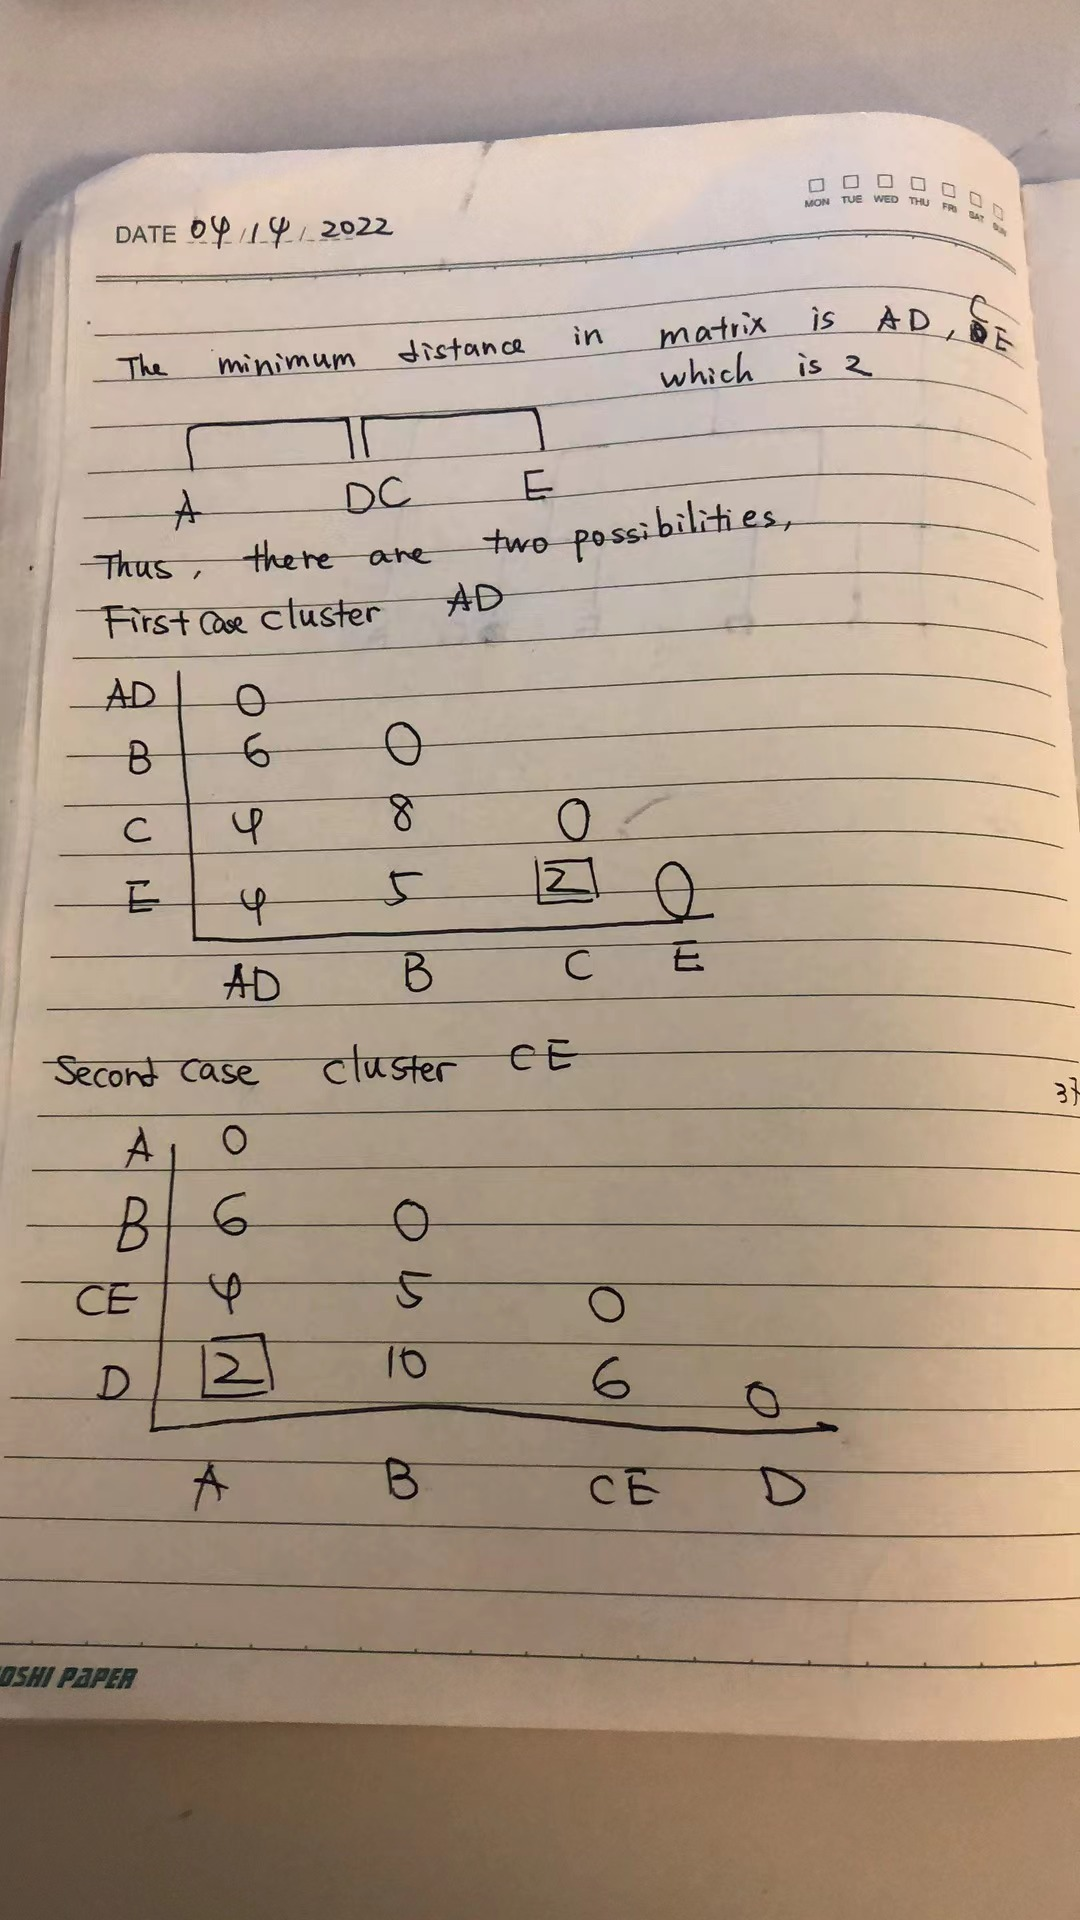 MON TUE WED THU FRI SAT SUN
DATE 04/14/2022
The minimum distance in matrix is AD, CE
which is 2
A DC E
Thus, there are two possibilities,
First case cluster AD
AD 0
B 6 0
C 4 8 0
E 4 5 2 0
AD B C E
Second case cluster CE
37
A 0
B 6 0
CE 4 5 0
D 2 10 6 0
A B CE D
OSHI PAPER